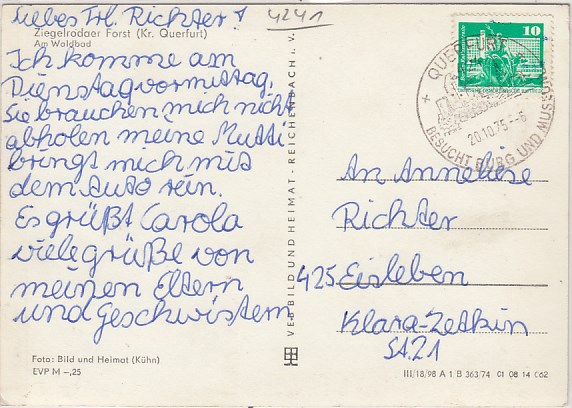 liebes Frl. Richter!
4241
Ziegelrodaer Forst (Kr. Querfurt)
Am Waldbad
Ich komme am
Dienstagvormittag.
Sie brauchen mich nicht
abholen meine Mutti
bringt mich mit
dem Auto rein.
Es grüßt Carola
viele grüße von
meinen Eltern
und geschwistern
Foto: Bild und Heimat (Kühn)
EVP M –,25
VEB BILD UND HEIMAT · REICHENBACH i. V.
10
QUERFURT
20.10.75
BESUCHT BURG UND
An Anneliese
Richter
425 Eisleben
Klara-Zetkin
III/18/98 A 1 B 363/74 01 08 14 062